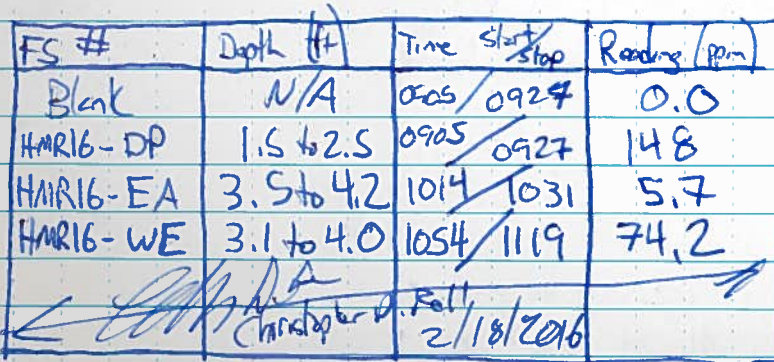 FS # Depth (ft) Time Start/Stop Reading (ppm)
Blank N/A 0905/0927 0.0
HMR16-DP 1.5 to 2.5 0905/0927 148
HMR16-EA 3.5 to 4.2 1014/1031 5.7
HMR16-WE 3.1 to 4.0 1054/1119 74.2
Christopher D.
2/18/2016